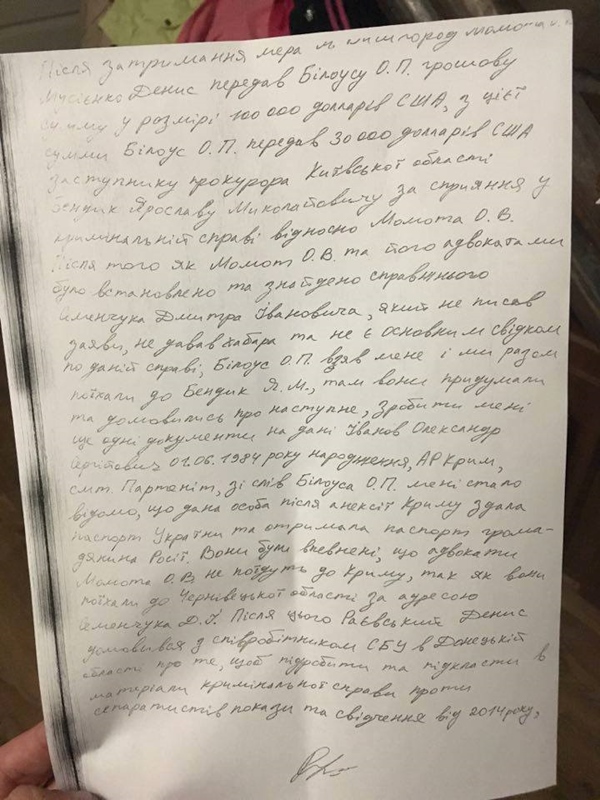 Після затримання мера м. Вишгород Момота О.В.
Мусієнко Денис передав Білоусу О.П. грошову
суму у розмірі 100 000 долларів США, з цієї
сумми Білоус О.П. передав 30 000 долларів США
заступнику прокурора Київської області
Бендик Ярославу Миколайовичу за сприяння у
кримінальній справі відносно Момота О.В.
Після того як Момот О.В. та його адвокатами
було встановлено та знайдено справжнього
Йменчука Дмитра Івановича, який не писав
заяви, не давав хабара та не є основним свідком
по даній справі, Білоус О.П. взяв мене і ми разом
поїхали до Бендик Я.М., там вони придумали
та домовились про наступне, зробити мені
ще одні документи на дані Іванов Олександр
Сергійович 01.06.1984 року народження, АР Крим,
смт. Партеніт, зі слів Білоуса О.П. мені стало
відомо, що дана особа після анексії Криму здала
паспорт України та отримала паспорт грома-
дянина Росії. Вони були впевнені, що адвокати
Момота О.В. не поїдуть до Криму, так як вони
поїхали до Чернівецької області за адресою
Йменчука Д.І. Після цього Раєвський Денис
домовився з співробітником СБУ в Донецькій
області про те, щоб підробити та підкласти в
матеріали кримінальної справи проти
сепаратистів покази та свідчення від 2014 року,